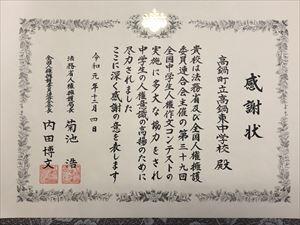 感謝状
高鍋町立高鍋東中学校 殿
貴校は法務省及び全国人権擁護
委員連合会主催の第三十九回
全国中学生人権作文コンテストの
実施に多大な協力をされ
中学生の人権意識の高揚のために
尽力されました
ここに深く感謝の意を表します
令和元年十二月四日
法務省人権擁護局長 菊池 浩
全国人権擁護委員連合会長 内田博文